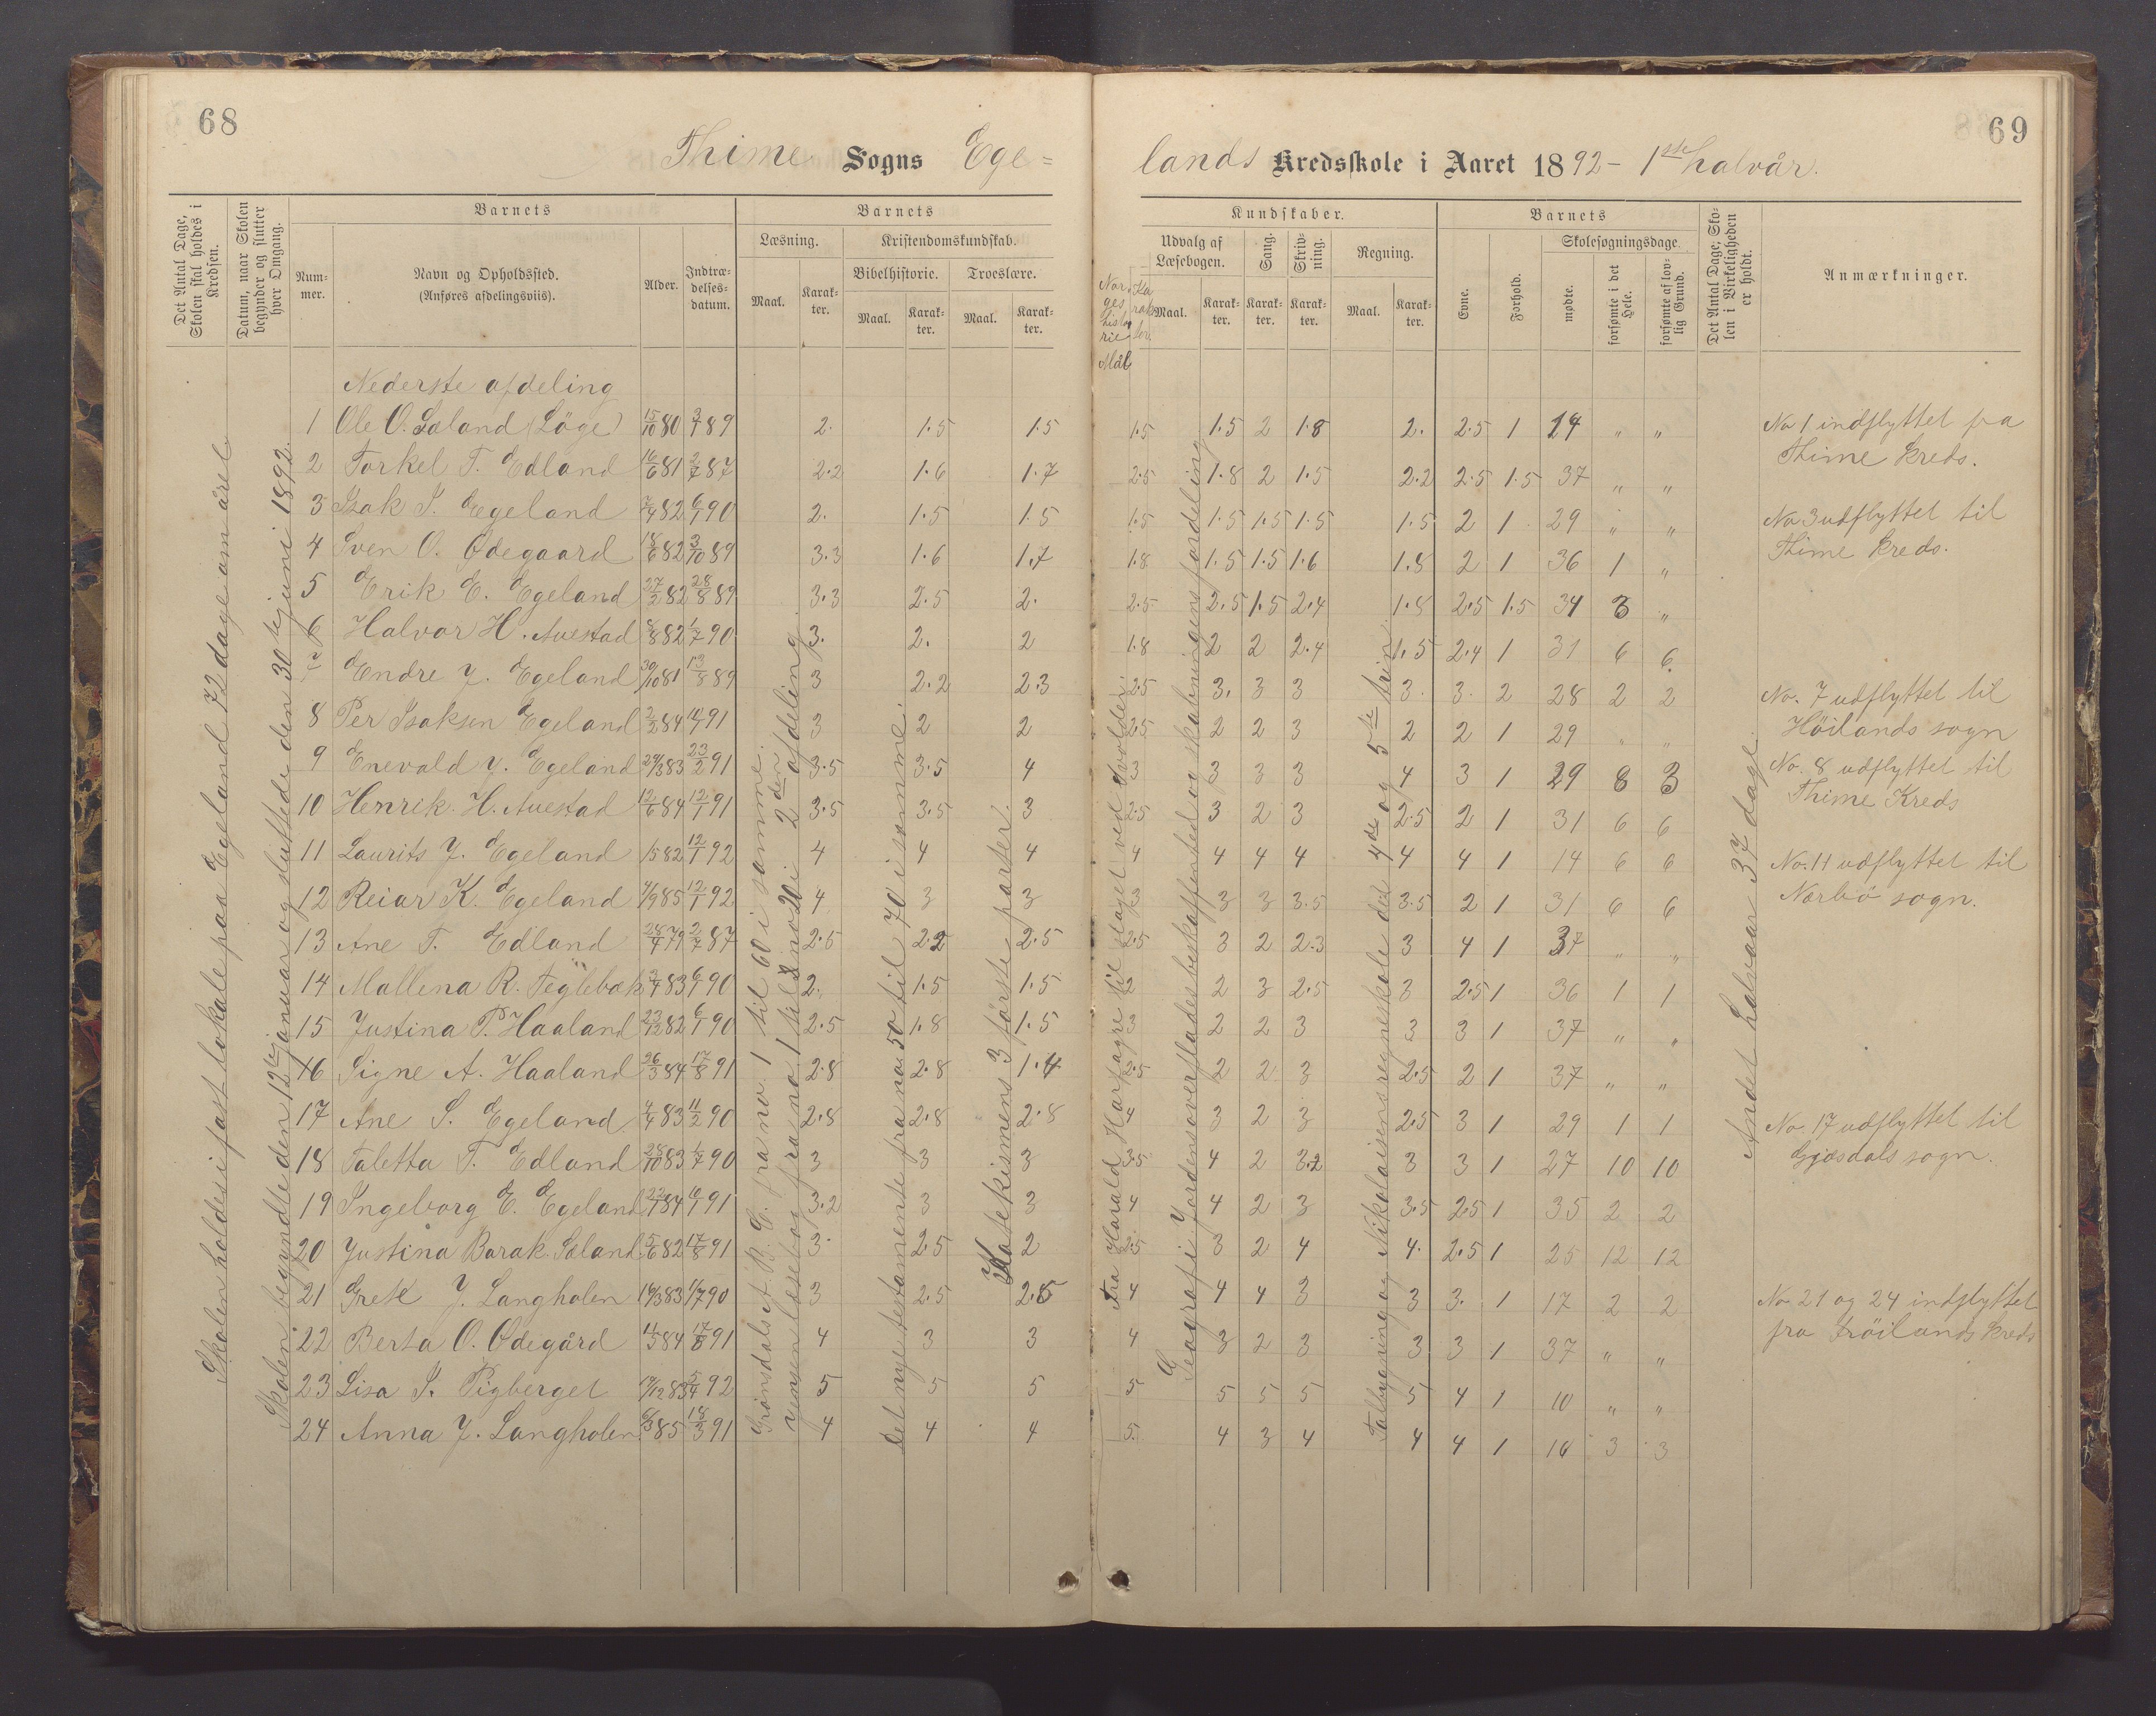 68
69
Thime Sogns Ege=
lands Kredsskole i Aaret 1892 - 1ste halvår.
Det Antal Dage, Skolen skal holdes i Kredsen.
Datum, naar Skolen begynder og slutter hver Omgang.
Barnets
Nummer.
Navn og Opholdssted.
(Anføres afdelingsviis).
Alder.
Indtrædelsesdatum.
Barnets
Læsning.
Maal.
Karakter.
Kristendomskundskab.
Bibelhistorie.
Maal.
Karakter.
Troeslære.
Maal.
Karakter.
Norges historie
Mål
Karakter.
Kundskaber.
Udvalg af Læsebogen.
Maal.
Karakter.
Sang.
Karakter.
Skrivning.
Karakter.
Regning.
Maal.
Karakter.
Barnets
Evne.
Forhold.
Skolesøgningsdage.
mødte.
forsømte i det Hele.
forsømte af lovlig Grund.
Det Antal Dage, Skolen i Virkeligheden er holdt.
Anmærkninger.
Skolen holdes i fast lokale paa Egeland 72 dage om året
Skolen begyndte den 12te januar og sluttede den 30te juni 1892.
Grønsdals A.B.C. fra no. 1 til 60 i samme.
Jensen læsebog fra no 1 til 2 no 20 i 2den afdeling
Det nye testamente fra no 50 til 70 i samme.
Katekismens 3 første parter.
Fra Harald Harfagre til slaget ved
Geografi: Jordens overfladesbeskaffenhed og skabningens fordeling
Talbygning og Nikolaisens regneskole det 4de og 5te trin.
Andet halvaar 37 dage.
Nederste afdeling
1 Ole O. Sæland (Löge) 15/10 80 3/7 89 2. 1.5 1.5 1.5 1.5 2 1.8 2. 2.5 1 24 " "
2 Torkel T. Edland 16/6 81 2/7 87 2.2 1.6 1.7 2.5 1.8 2 1.5 2.2 2.5 1.5 37 " "
3 Isak I. Egeland 7/4 82 6/1 90 2. 1.5 1.5 1.5 1.5 1.5 1.5 1.5 2 1 29 " "
4 Sven O. Ødegaard 18/6 82 3/10 89 3.3 1.6 1.7 1.8 1.5 1.5 1.6 1.8 2 1 36 1 "
5 Erik E. Egeland 27/2 82 28/8 89 3.3 2.5 2. 2.5 2.5 1.5 2.4 1.8 2.5 1.5 34 3 "
6 Halvor H. Auestad 8/8 82 1/7 90 3. 2. 2 1.8 2 2 2.4 1.5 2.4 1 31 6 6
7 Endre J. Egeland 30/10 81 13/8 89 3 2.2 2.3 2.5 3. 3 3 3. 3. 2 28 2 2
8 Per Isaksen Egeland 2/2 84 91 3 2 2 2.5 2 2 3 2 2 1 29 " "
9 Enevald J. Egeland 29/3 83 23/2 91 3.5 3.5 4 3 3 3 3 4 3 1 29 8 3
10 Henrik H. Auestad 12/6 84 12/1 91 3.5 3.5 3 2.5 3 2 3 2.5 2 1 31 6 6
11 Laurits J. Egeland 82 12/1 92 4 4 4 4 4 4 4 4 4 1 14 6 6
12 Reiar K. Egeland 4/9 85 12/1 92 4 3 3 3 3 3 3.5 3.5 2 1 31 6 6
13 Ane T. Edland 28/4 79 2/7 87 2.5 2.2 2.5 2.5 3 2 2.3 3 4 1 37 " "
14 Mallena R. Teglebæk 83 6/1 90 2. 1.5 1.5 2 2 3 2.5 3 2.5 1 36 1 1
15 Justina P. Haaland 23/12 82 6/1 90 2.5 1.8 1.5 3 2 2 3 3 3 1 37 " "
16 Signe A. Haaland 26/3 84 17/8 91 2.8 2.8 1.4 2.5 2 2 3 2.5 2 1 37 " "
17 Ane S. Egeland 4/4 83 11/2 90 2.8 2.8 2.8 4 3 2 3 2.5 3 1 29 1 1
18 Taletta T. Edland 28/10 83 1/7 90 3 3 3 3.5 4 2 3.2 3 3 1 27 10 10
19 Ingeborg E. Egeland 84 91 3.2 3 3 4 4 2 3 3.5 2.5 1 35 2 2
20 Justina Barak. Sæland 5/6 82 17/8 91 3. 2.5 2 2.5 3 2 4 4. 2.5 1 25 12 12
21 Grete J. Langholen 83 90 3 2.5 2.5 4 4 4 3 3 3. 1 17 2 2
22 Berta O. Ødegård 84 17/8 91 4 3 3 4 3 2 3 3 3 1 37 " "
23 Lisa S. Pigberget 83 5/4 92 5 5 5 5 5 5 5 5 4 1 10 " "
24 Anna J. Langholen 6/3 85 18/3 91 4 4 4 5. 4 3 4 4 4 1 16 3 3
No 1 indflyttet fra
Thime kreds.
No 3 udflyttet til
Thime kreds.
No. 7 udflyttet til
Höilands sogn
No. 8 udflyttet til
Thime Kreds
No. 11 udflyttet til
Nærbö sogn.
No. 17 udflyttet til
Gjæsdals sogn.
No 21 og 24 indflyttet
fra Fröilands kreds